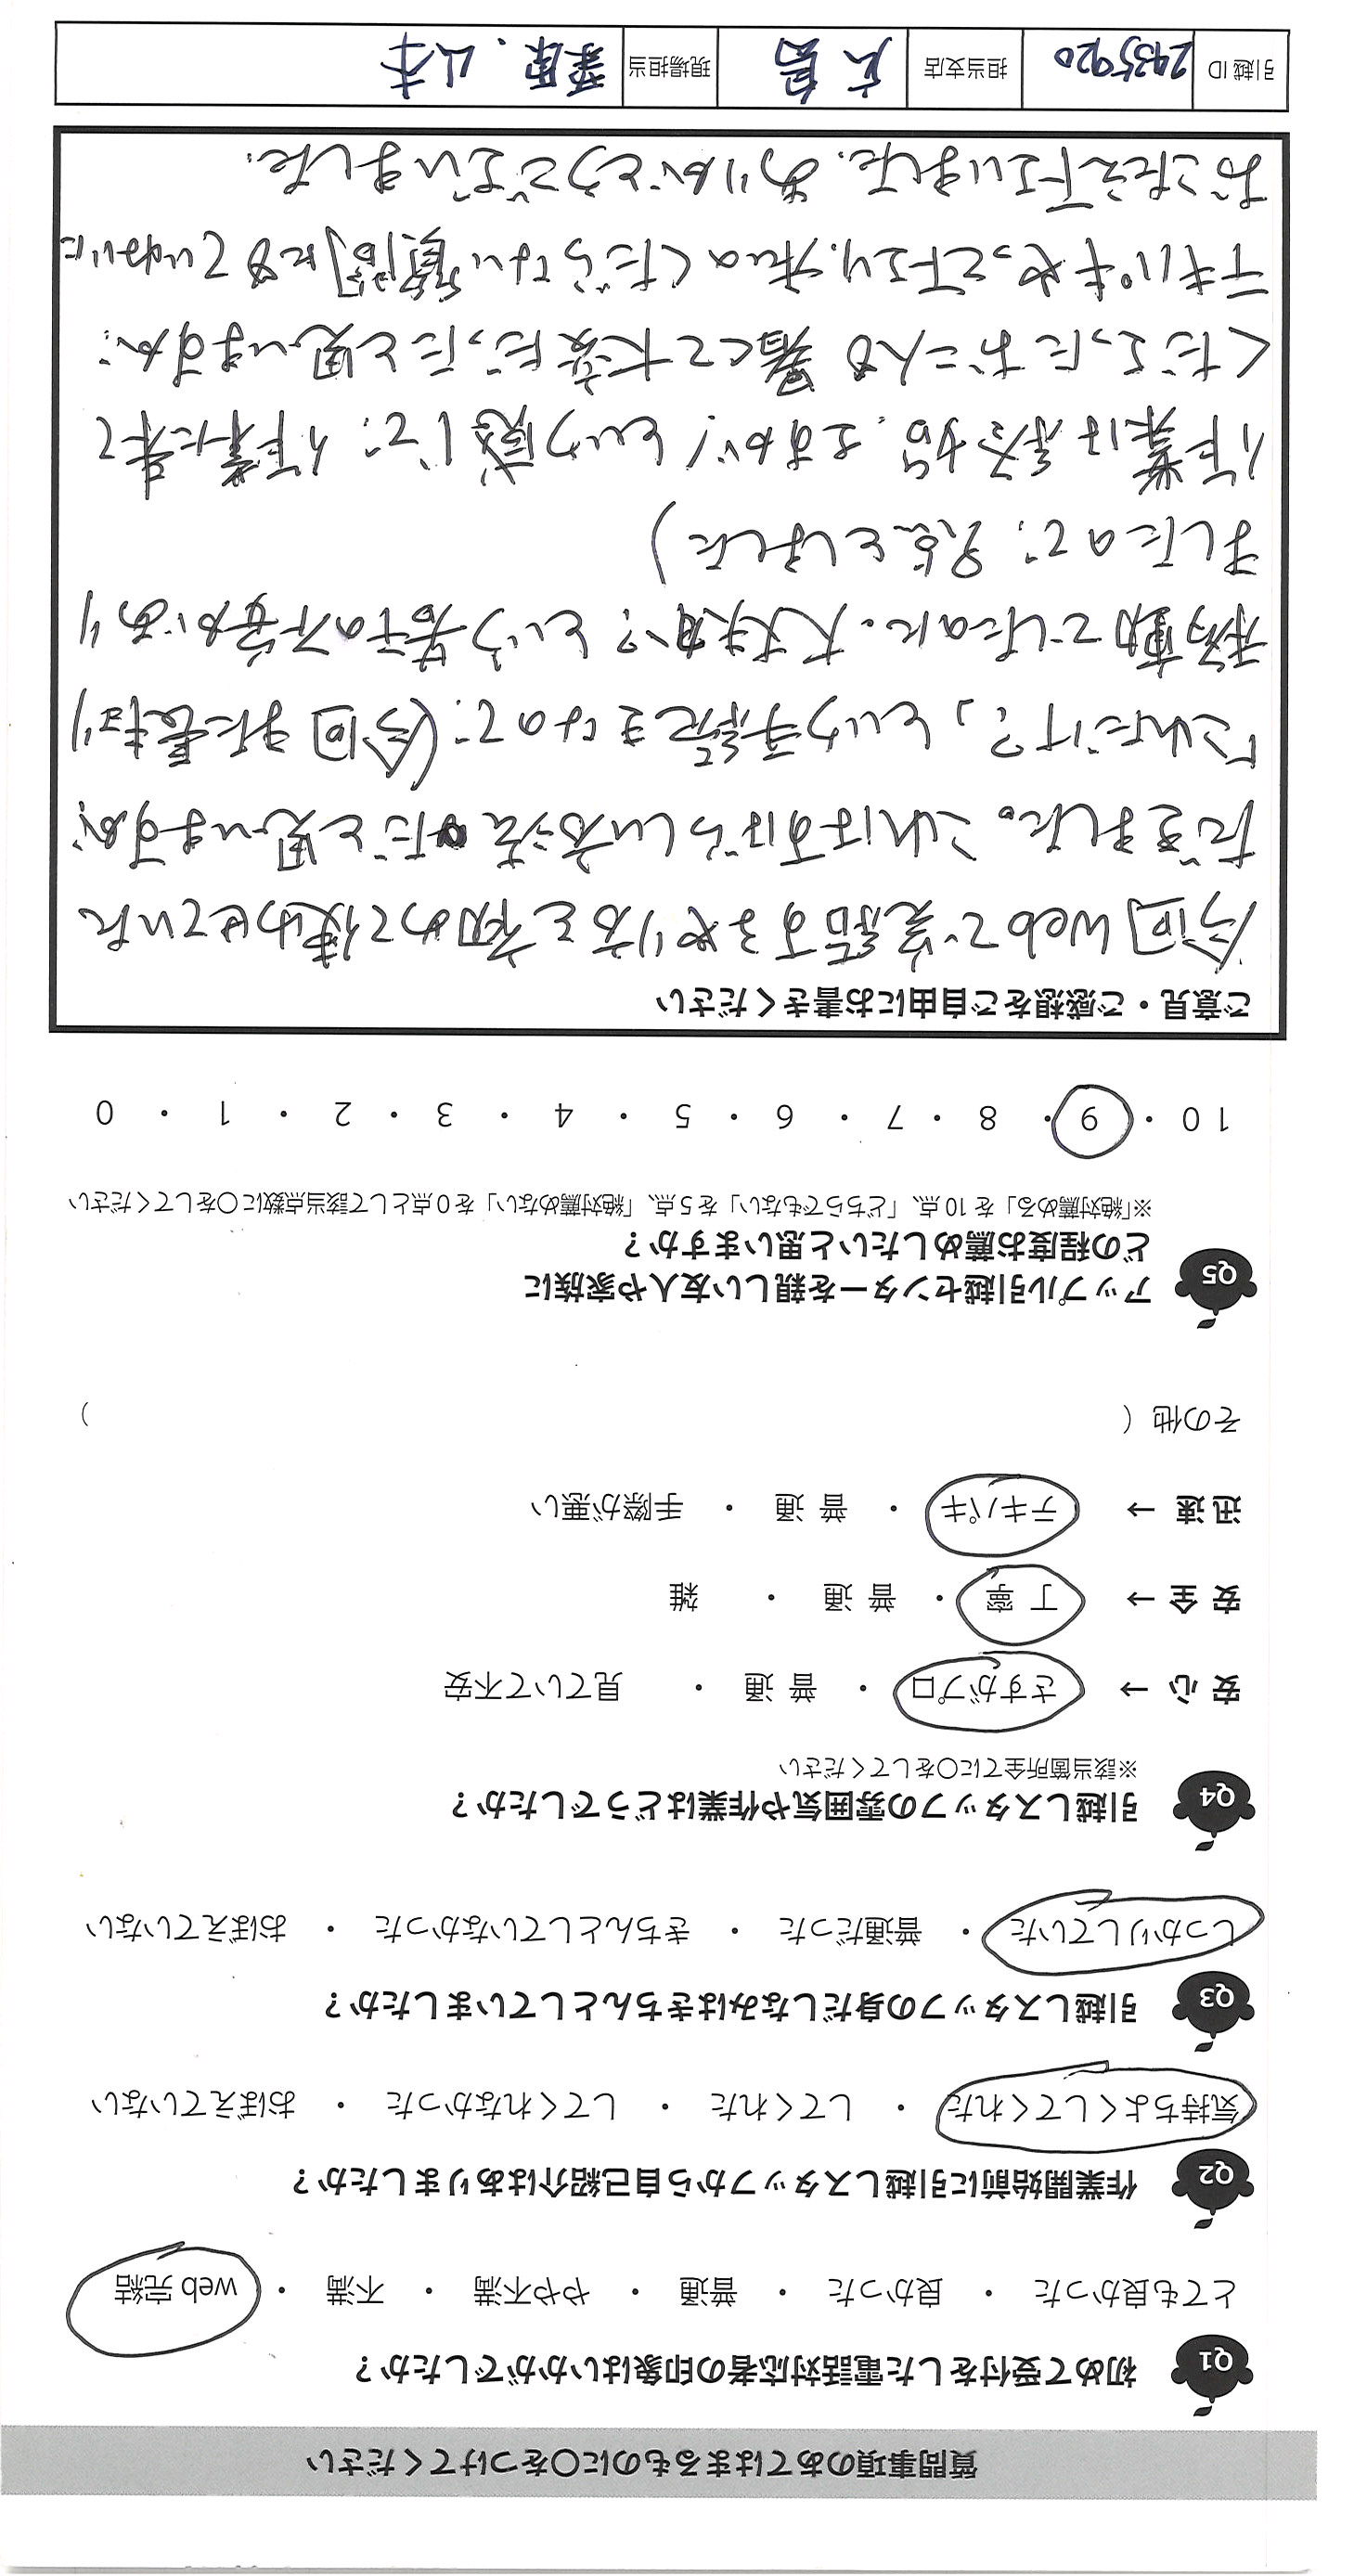 質問事項のあてはまるものに○をつけてください
Q1 初めて受付をした電話対応者の印象はいかがでしたか?
とても良かった ・ 良かった ・ 普通 ・ やや不満 ・ 不満 ・ web 完結
Q2 作業開始前に引越しスタッフから自己紹介はありましたか?
気持ちよくしてくれた ・ してくれた ・ してくれなかった ・ おぼえていない
Q3 引越しスタッフの身だしなみはきちんとしていましたか?
しっかりしていた ・ 普通だった ・ きちんとしていなかった ・ おぼえていない
Q4 引越しスタッフの雰囲気や作業はどうでしたか?
※該当箇所全てに○をしてください
安 心 → さすがプロ ・ 普 通 ・ 見ていて不安
安 全 → 丁 寧 ・ 普 通 ・ 雑
迅 速 → テキパキ ・ 普 通 ・ 手際が悪い
その他 ( )
Q5 アップル引越センターを親しい友人や家族に
どの程度お薦めしたいと思いますか?
※「絶対薦める」を 10 点、「どちらでもない」を 5 点、「絶対薦めない」を 0 点として該当点数に○をしてください
10 ・ 9 ・ 8 ・ 7 ・ 6 ・ 5 ・ 4 ・ 3 ・ 2 ・ 1 ・ 0
ご意見・ご感想をご自由にお書きください
今回Webで完結するやり方を初めて使わせていた
だきました。これはすばらしい方法だと思いますが、
「これだけ?」という手続きなので、(今回 まに長キョリ
移動でしたのに。大丈夫か?という若干の不安があり
ましたので、9点としました)
作業は系から、さすが!という感じで、作業に来て
くださったお二人も暑くて大変だったと思いますが、
テキパキやって下さり、私のくだらない質問にもていねいに
おこたえ下さいました。ありがとうございました。
引越 ID 2935920 担当支店 広島 現場担当 栗原、山本